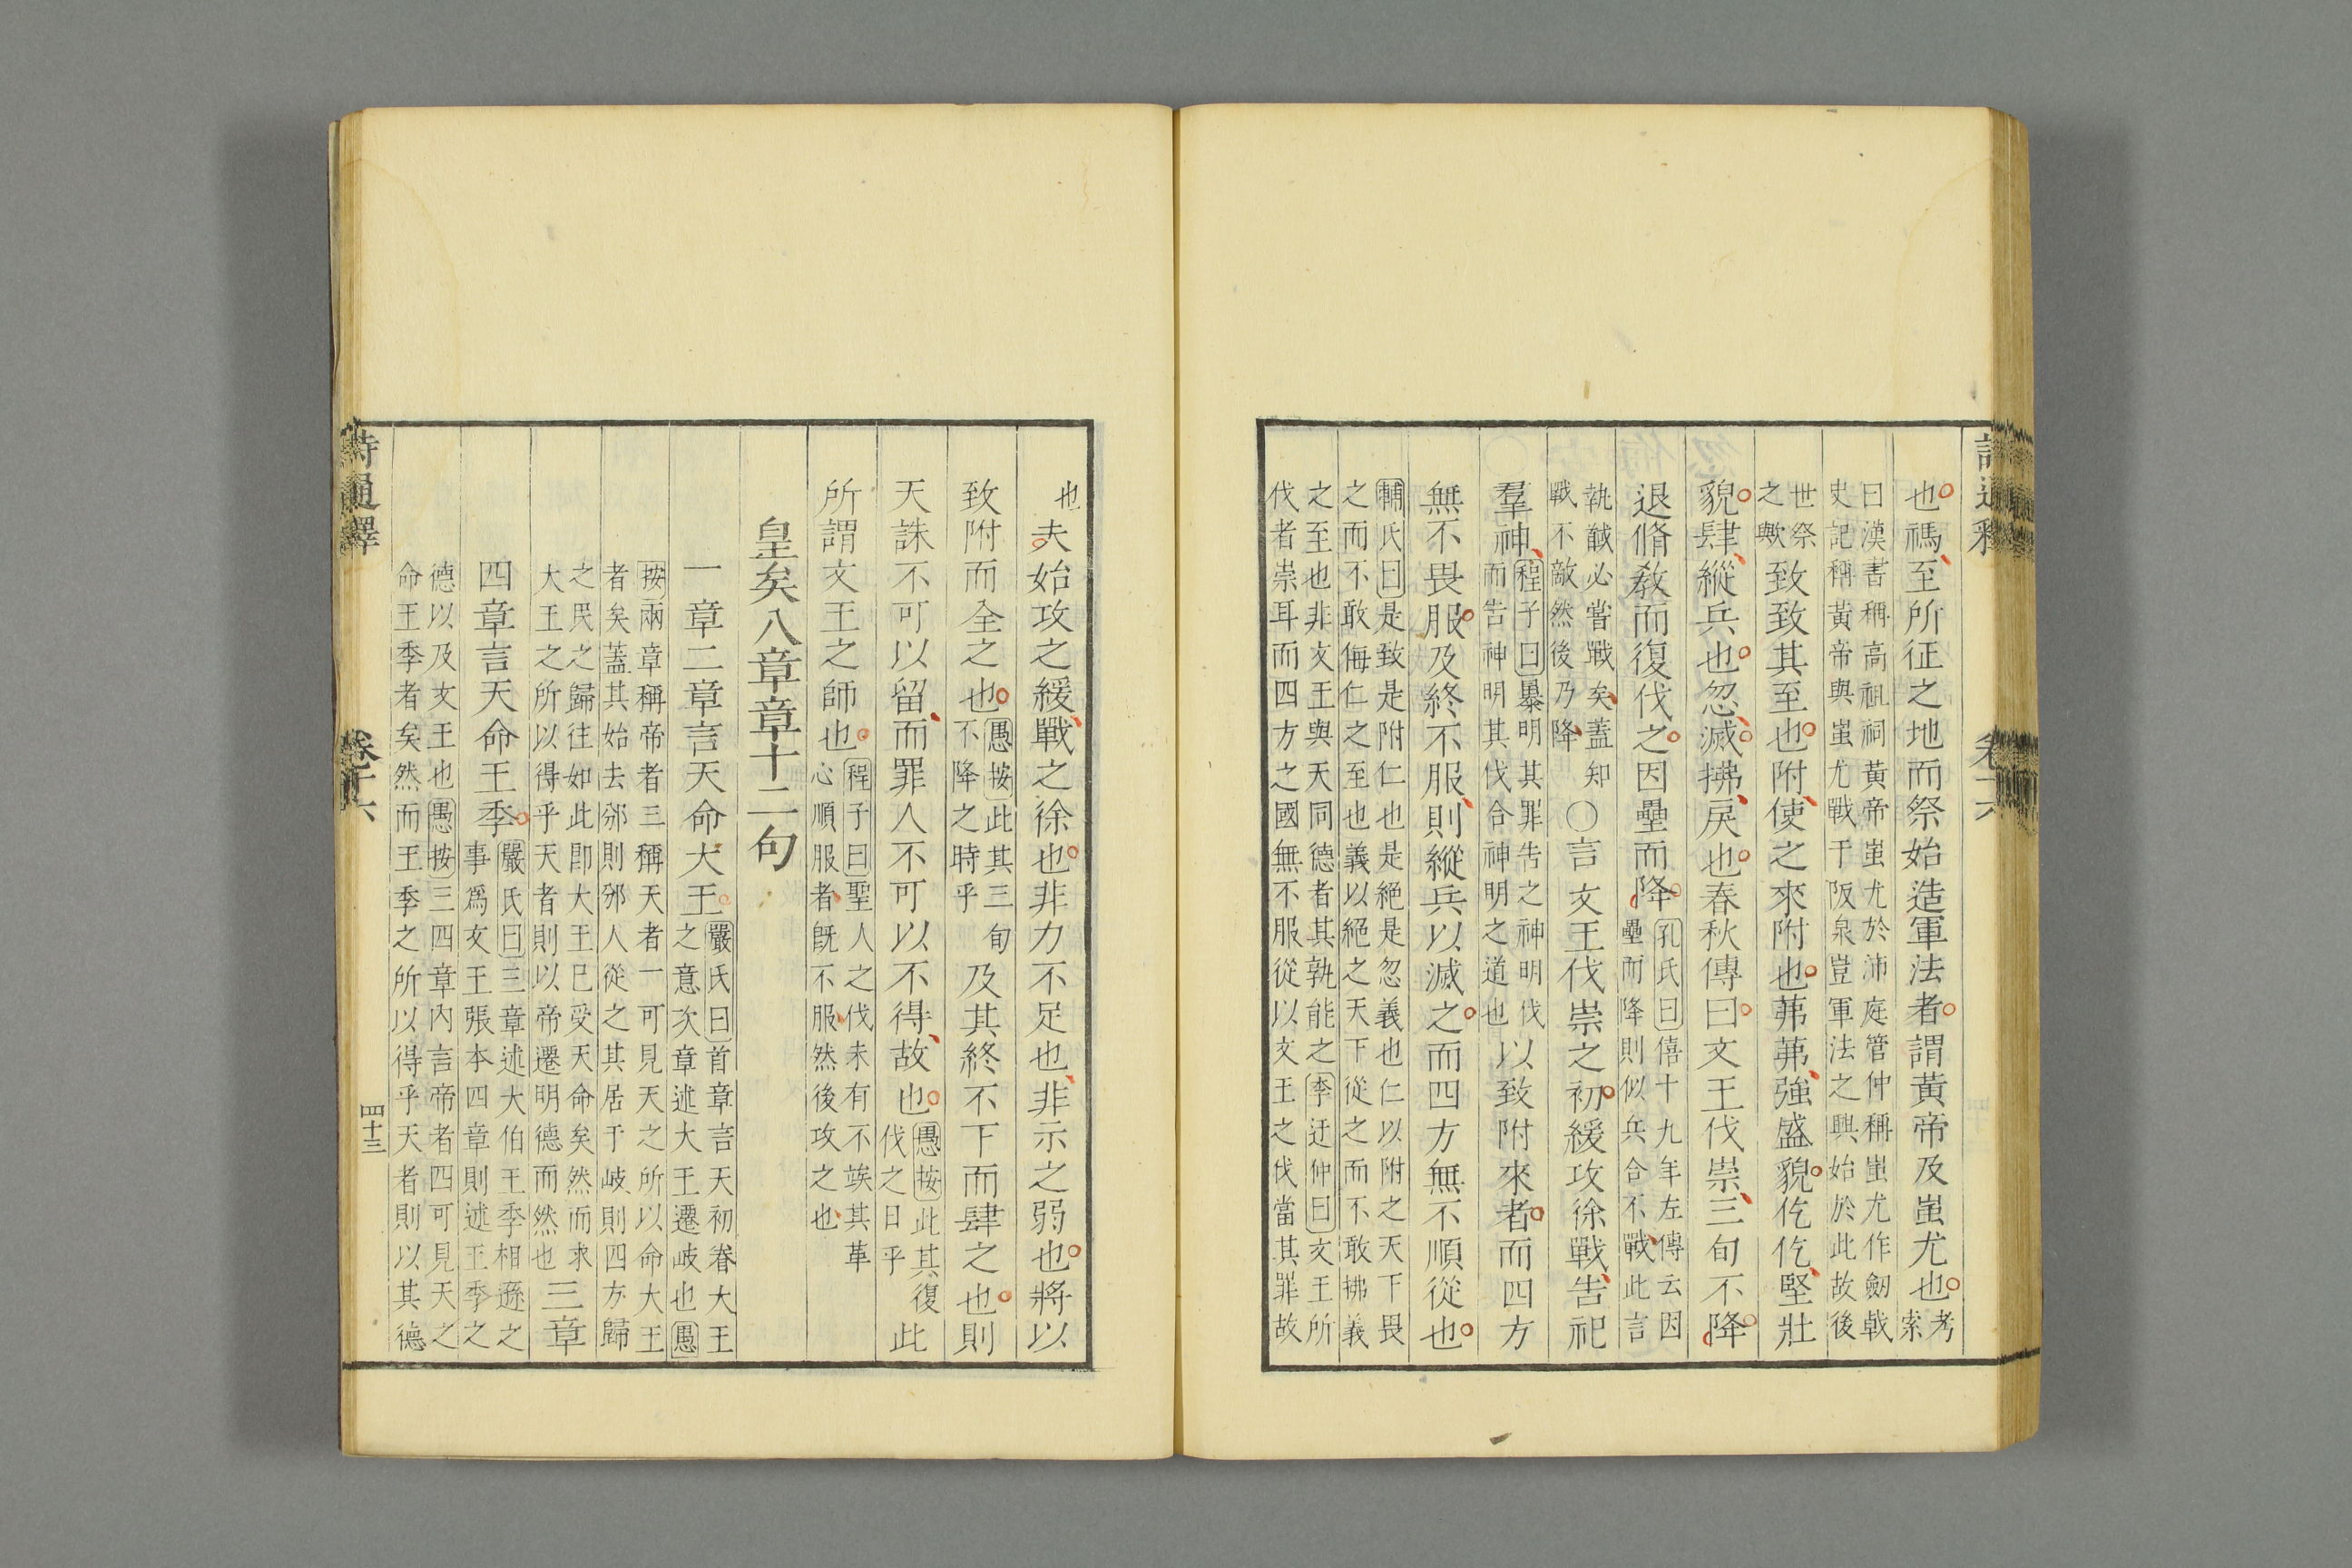 詩通釋 卷十六
也禡至所征之地而祭始造軍法者謂黃帝及蚩尤也考索
曰漢書稱高祖祠黃帝蚩尤於沛庭管仲稱蚩尤作劒戟
史記稱黃帝與蚩尤戰于阪泉豈軍法之興始於此故後
世祭之歟致致其至也附使之來附也茀茀強盛貌仡仡堅壯
貌肆縱兵也忽滅拂戾也春秋傳曰文王伐崇三旬不降
退脩敎而復伐之因壘而降孔氏曰僖十九年左傳云因壘而降則似兵合不戰此言
執馘必當戰矣蓋知戰不敵然後乃降○言文王伐崇之初緩攻徐戰告祀
羣神程子曰暴明其罪告之神明伐而告神明其伐合神明之道也以致附來者而四方
無不畏服及終不服則縱兵以滅之而四方無不順從也
輔氏曰是致是附仁也是絕是忽義也仁以附之天下畏
之而不敢侮仁之至也義以絕之天下從之而不敢拂義
之至也非文王與天同德者其孰能之李迂仲曰文王所
伐者崇耳而四方之國無不服從以文王之伐當其罪故
也夫始攻之緩戰之徐也非力不足也非示之弱也將以
致附而全之也愚按此其三旬不降之時乎及其終不下而肆之也則
天誅不可以留而罪人不可以不得故也愚按此其復伐之日乎此
所謂文王之師也程子曰聖人之伐未有不竢其革心順服者旣不服然後攻之也
皇矣八章章十二句
一章二章言天命大王嚴氏曰首章言天初眷大王之意次章述大王遷岐也愚
按兩章稱帝者三稱天者一可見天之所以命大王
者矣蓋其始去邠則邠人從之其居于岐則四方歸
之民之歸往如此卽大王已受天命矣然而求
大王之所以得乎天者則以帝遷明德而然也三章
四章言天命王季嚴氏曰三章述大伯王季相遜之事爲文王張本四章則述王季之
德以及文王也愚按三四章內言帝者四可見天之
命王季者矣然而王季之所以得乎天者則以其德
詩通釋 卷十六 四十三